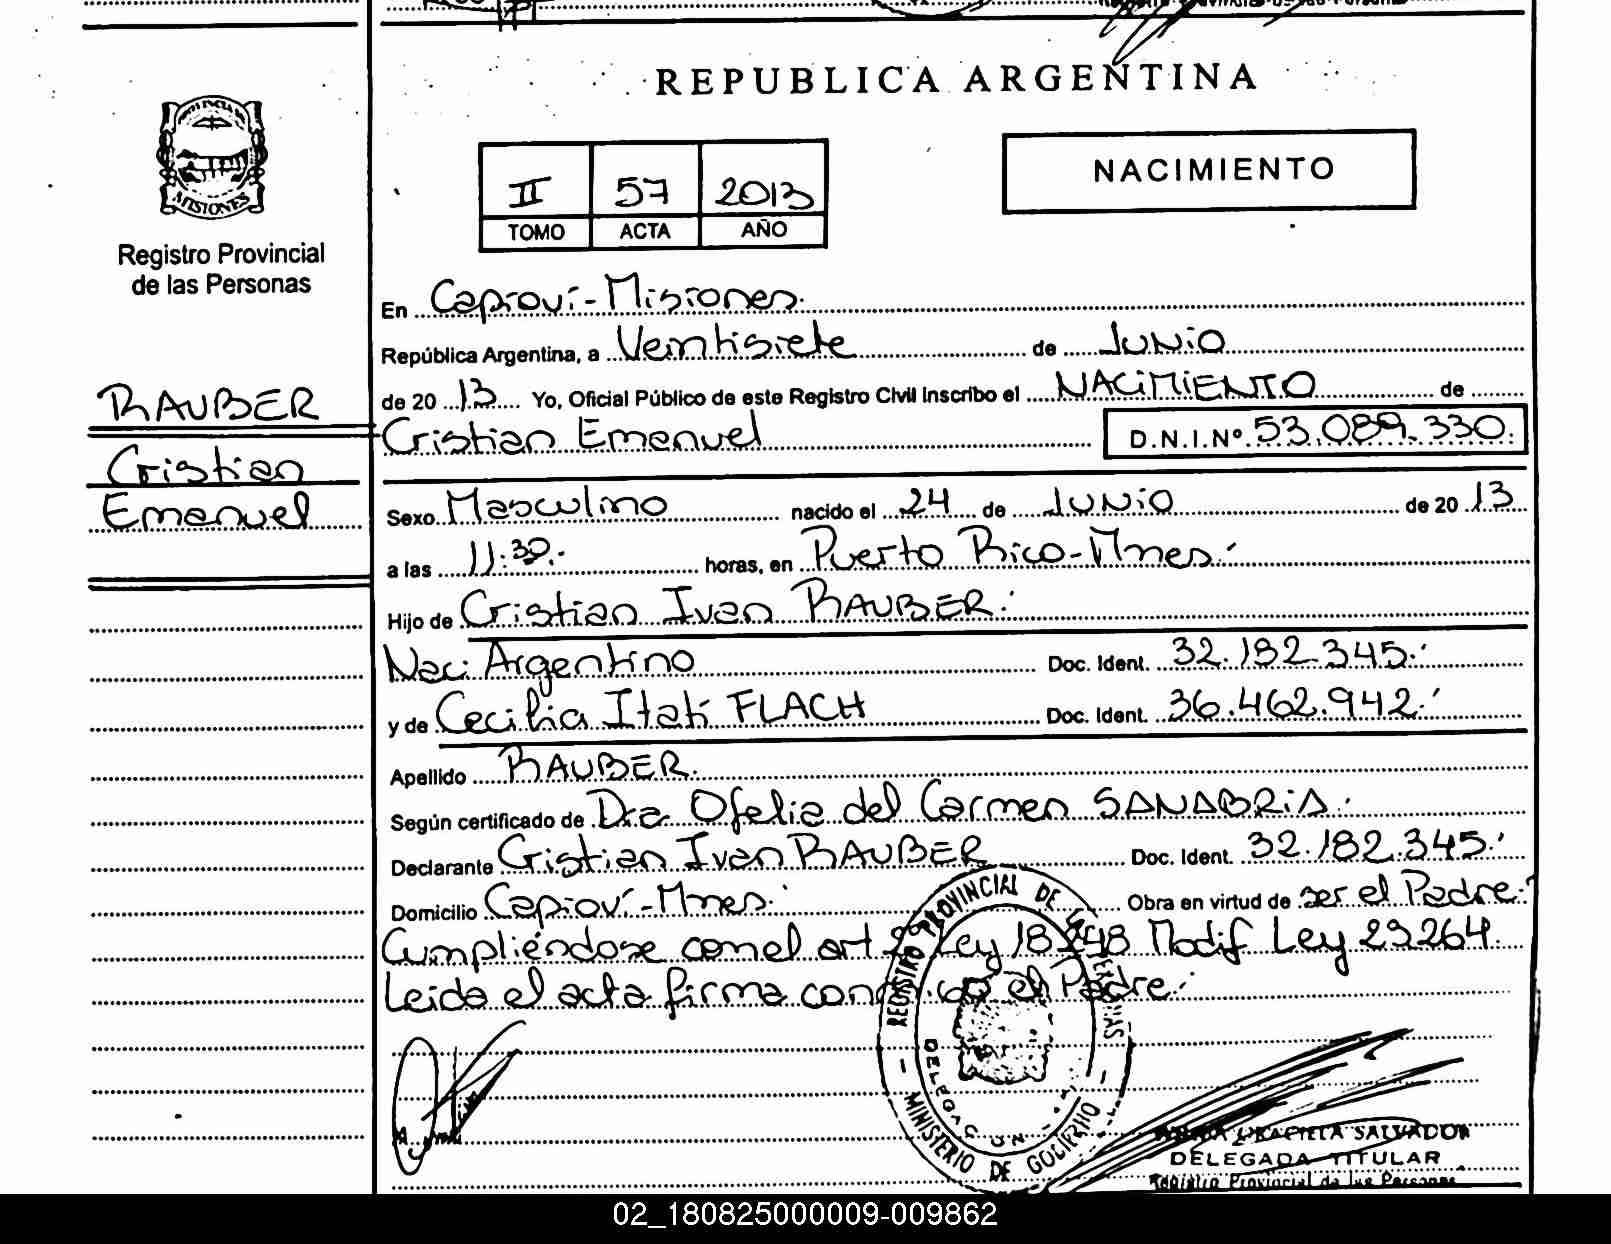 REPUBLICA ARGENTINA
PROVINCIA DE
MISIONES
Registro Provincial
de las Personas
II 57 2013
TOMO ACTA AÑO
NACIMIENTO
RAUBER
Cristian
Emanuel
En Capioví - Misiones.
República Argentina, a Veintisiete de Junio
de 2013 Yo, Oficial Público de este Registro Civil Inscribo el NACIMIENTO de
Cristian Emanuel D.N.I.Nº 53.089.330.
Sexo Masculino nacido el 24 de Junio de 2013
a las 11:30.- horas, en Puerto Rico - Mnes.-
Hijo de Cristian Ivan RAUBER.-
Nac: Argentino Doc. Ident. 32.182.345.-
y de Cecilia Itatí FLACH Doc. Ident. 36.462.942.-
Apellido RAUBER.
Según certificado de Dra Ofelia del Carmen SANABRIA.-
Declarante Cristian Ivan RAUBER Doc. Ident. 32.182.345.-
Domicilio Capioví - Mnes.- Obra en virtud de ser el Padre.-
Cumpliéndose con el art Ley 18248 Modif Ley 23264.
Leida el acta firma conmigo el Padre.-
REGISTRO PROVINCIAL DE LAS PERSONAS
DELEGACION
MINISTERIO DE GOBIERNO
GRACIELA SALVADOR
DELEGADA TITULAR
Registro Provincial de las Personas
02_180825000009-009862